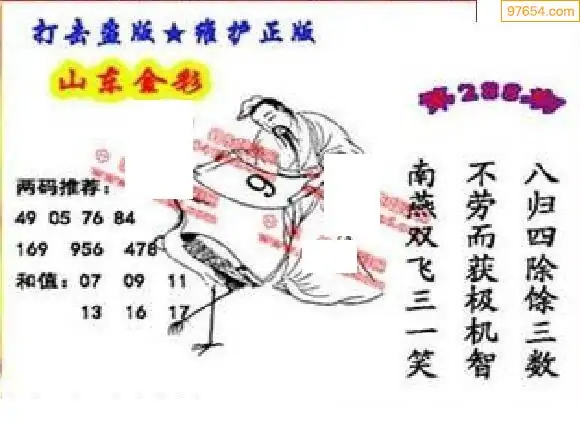 97654.com
打击盗版★维护正版
山东金彩
第288期
两码推荐：
49 05 76 84
169 956 478
和值：07 09 11
13 16 17
9
八归四除馀三数
不劳而获极机智
南燕双飞三一笑